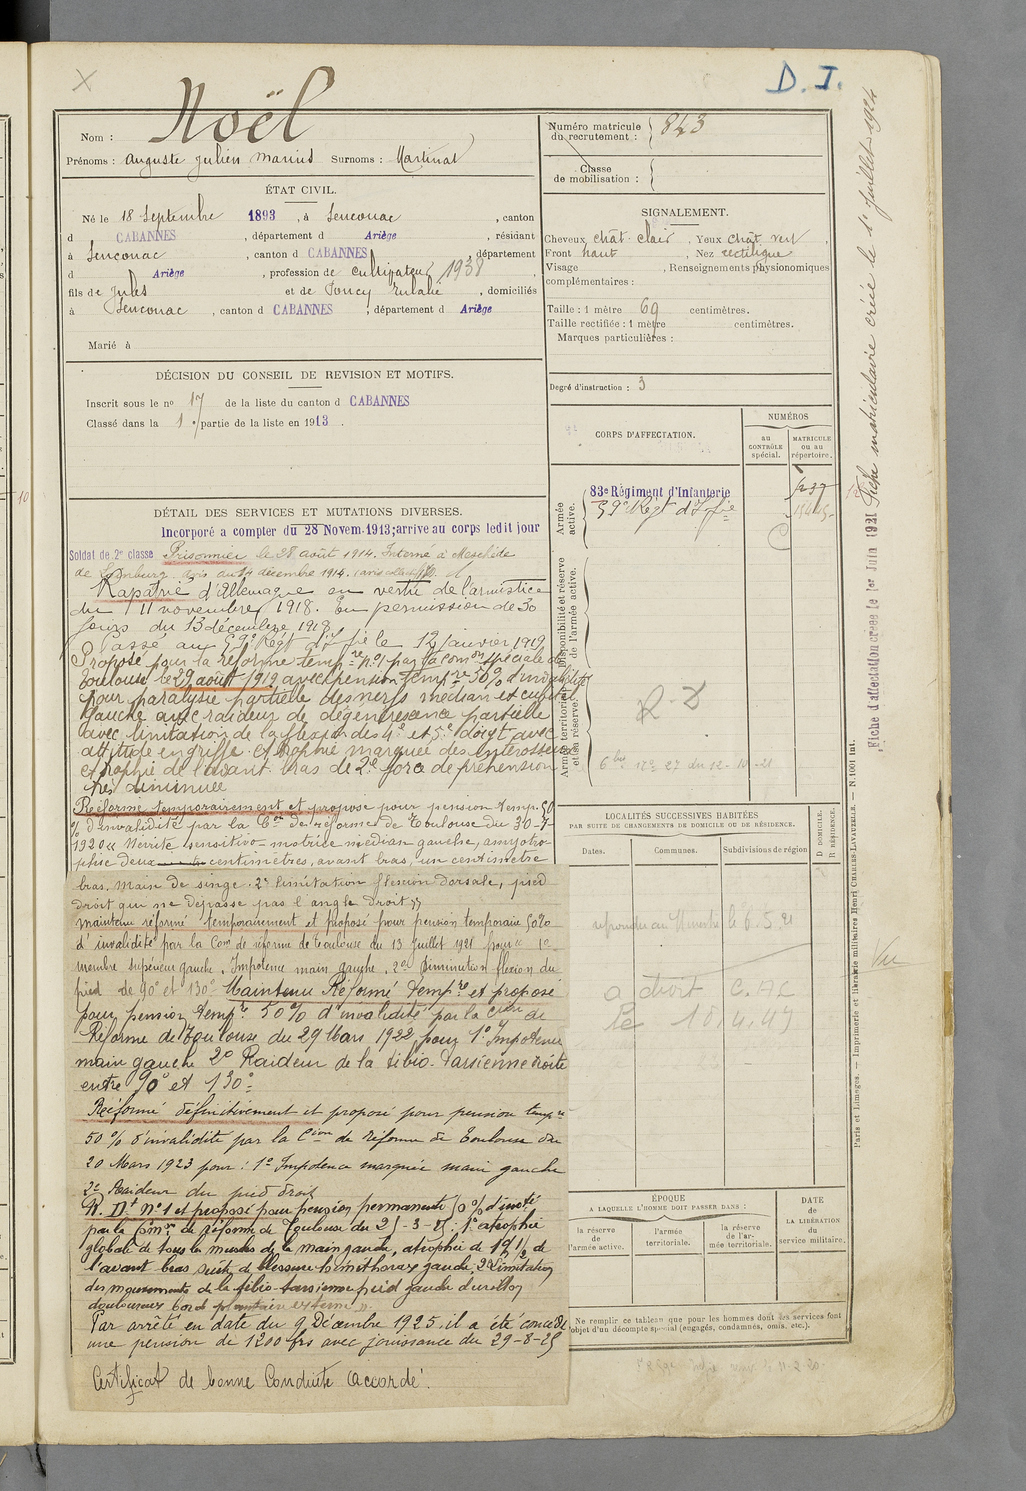 X
D. I.
Nom : Noël
Prénoms : Auguste Julien Marius Surnoms : Martinat
ÉTAT CIVIL.
Né le 18 Septembre 1893, à Senconac, canton
d CABANNES, département d Ariège, résidant
à Senconac, canton d CABANNES, département
d Ariège, profession de cultivateur 1938,
fils de Jules et de Poncy Eulalie, domiciliés
à Senconac, canton d CABANNES, département d Ariège
Marié à
DÉCISION DU CONSEIL DE REVISION ET MOTIFS.
Inscrit sous le no 17 de la liste du canton d CABANNES
Classé dans la 1e partie de la liste en 1913.
DÉTAIL DES SERVICES ET MUTATIONS DIVERSES.
Incorporé a compter du 28 Novem. 1913; arrive au corps ledit jour
Soldat de 2e classe Prisonnier le 28 août 1914. Interné à Meschede
avis du 14 décembre 1914.
Rapatrié d'Allemagne en vertu de l'armistice
du 11 novembre 1918. En permission de 30
jours du 13 décembre 1918
Passé au 59e Régt d'Inf.ie le 12 janvier 1919
Proposé pour la réforme temp.re no 1 par la com.on spéciale de
Toulouse le 29 août 1919 avec pension temp.re 50% d'invalidité
pour paralysie partielle des nerfs médian et cubital
gauche avec raideur de dégénérescence partielle
avec limitation de la flexion des 4e et 5e doigt avec
attitude en griffe. Atrophie marquée des interosseux
atrophie de l'avant-bras de 2c force de préhension
très diminuée
Réformé temporairement et proposé pour pension temp. 50
% d'invalidité par la Con de réforme de Toulouse du 30-7-
1920 « Névrite sensitivo-motrice médian gauche, amyotro-
phie deux centimètres, avant bras, un centimètre
bras. Main de singe. 2o limitation flexion dorsale, pied
droit qui ne dépasse pas l'angle droit »
Maintenu réformé temporairement et proposé pour pension temporaire 50%
d'invalidité par la Com. de réforme de Toulouse du 13 Juillet 1921 pour « 1o
membre supérieur gauche. Impotence main gauche. 2o Diminution flexion du
pied de 90° et 130° Maintenu Réformé temp.re et proposé
pour pension temp.re 50% d'invalidité par la Cion de
Réforme de Toulouse du 29 Mars 1922 pour 1o Impotence
main gauche 2o Raideur de la tibio-tarsienne droite
entre 90° et 130°
Réformé définitivement et proposé pour pension temp.re
50 % d'invalidité par la Cion de réforme de Toulouse du
20 Mars 1923 pour : 1o Impotence marquée main gauche
2o Raideur du pied droit
R. Dt No 1 et proposé pour pension permanente 50% d'invté
par la Com.on de réforme de Toulouse du 25-3-25 : 1o atrophie
globale de tous les muscles de la main gauche, atrophie de 1c 1/2 de
l'avant bras suite de blessure hémithorax gauche, 2o limitation
des mouvements de la tibio-tarsienne pied gauche durillon
douloureux bord plantaire externe ».
Par arrêté en date du 9 Décembre 1925, il a été concédé
une pension de 1200 frs avec jouissance du 29-8-25
Certificat de bonne Conduite Accordé.
Numéro matricule du recrutement : 843
Classe de mobilisation :
SIGNALEMENT.
Cheveux chât. clair, Yeux chât vert,
Front haut, Nez rectiligne
Visage , Renseignements physionomiques
complémentaires :
Taille : 1 mètre 69 centimètres.
Taille rectifiée : 1 mètre centimètres.
Marques particulières :
Degré d'instruction : 3
CORPS D'AFFECTATION.
NUMÉROS
au CONTRÔLE spécial.
MATRICULE ou au répertoire.
Armée active.
83e Régiment d'Infanterie
59e Régt d'Infie
Disponibilité et réserve de l'armée active.
Armée territoriale et sa réserve.
R.D
27 du 12-10-21
LOCALITÉS SUCCESSIVES HABITÉES
PAR SUITE DE CHANGEMENTS DE DOMICILE OU DE RÉSIDENCE.
Dates.
Communes.
Subdivisions de région
D DOMICILE.
R RÉSIDENCE.
le 6.5.21
a droit C. AC
le 18.4.47
Vu
ÉPOQUE
A LAQUELLE L'HOMME DOIT PASSER DANS :
la réserve de l'armée active.
l'armée territoriale.
la réserve de l'armée territoriale.
DATE de LA LIBÉRATION du service militaire.
Ne remplir ce tableau que pour les hommes dont les services font
l'objet d'un décompte spécial (engagés, condamnés, omis, etc.).
Fiche d'affectation créée le 1er Juin 1921
Fiche matriculaire créée le 1er Juillet 1924
Paris et Limoges. — Imprimerie et librairie militaires Henri CHARLES-LAVAUZELLE. — N. 1001 int.